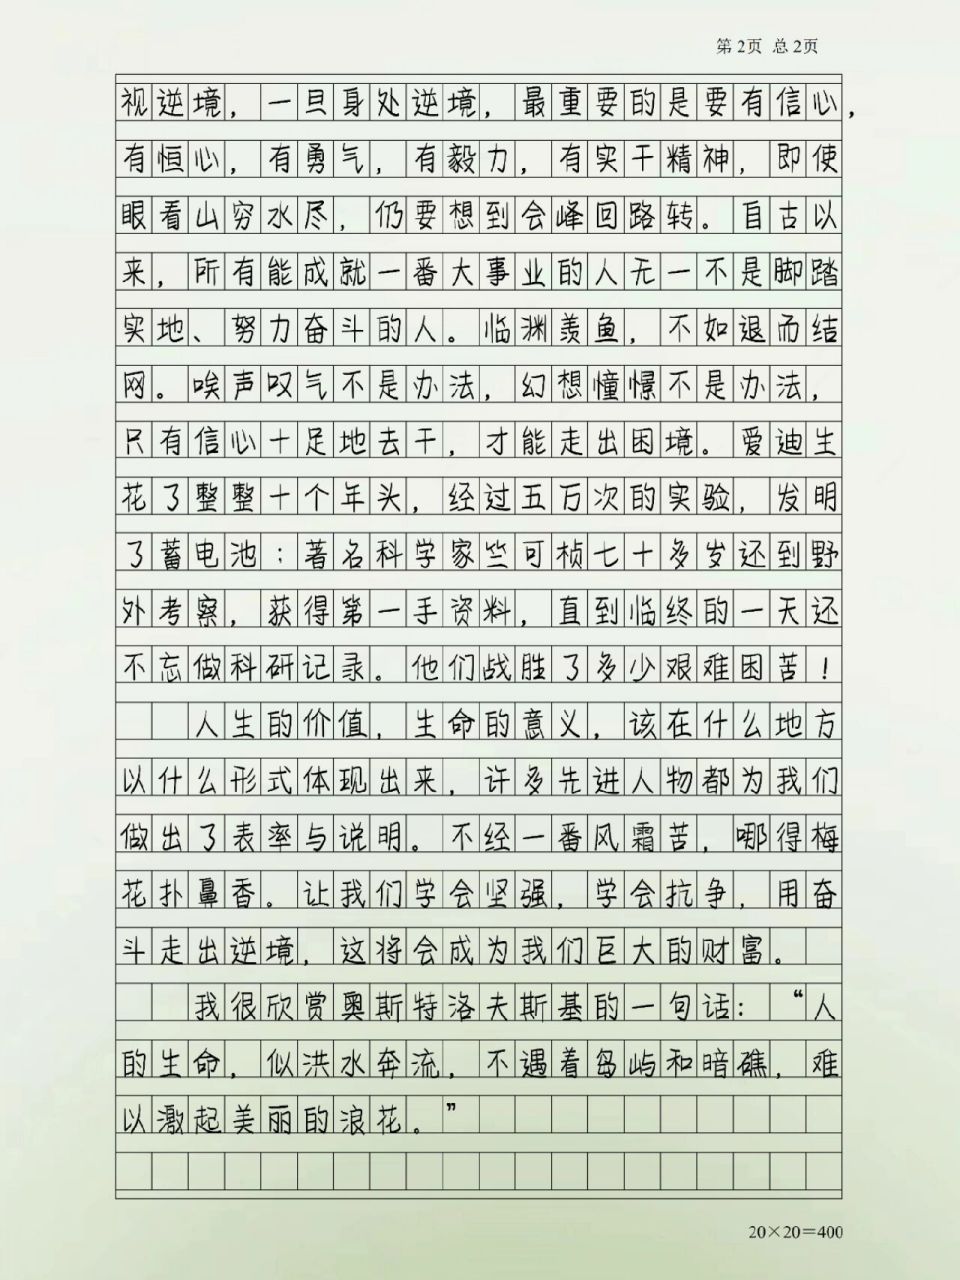 第2页 总2页
视逆境，一旦身处逆境，最重要的是要有信心，
有恒心，有勇气，有毅力，有实干精神，即使
眼看山穷水尽，仍要想到会峰回路转。自古以
来，所有能成就一番大事业的人无一不是脚踏
实地、努力奋斗的人。临渊羡鱼，不如退而结
网。唉声叹气不是办法，幻想憧憬不是办法，
只有信心十足地去干，才能走出困境。爱迪生
花了整整十个年头，经过五万次的实验，发明
了蓄电池；著名科学家竺可桢七十多岁还到野
外考察，获得第一手资料，直到临终的一天还
不忘做科研记录。他们战胜了多少艰难困苦！
人生的价值，生命的意义，该在什么地方
以什么形式体现出来，许多先进人物都为我们
做出了表率与说明。不经一番风霜苦，哪得梅
花扑鼻香。让我们学会坚强，学会抗争，用奋
斗走出逆境，这将会成为我们巨大的财富。
我很欣赏奥斯特洛夫斯基的一句话：“人
的生命，似洪水奔流，不遇着岛屿和暗礁，难
以激起美丽的浪花。”
20×20=400